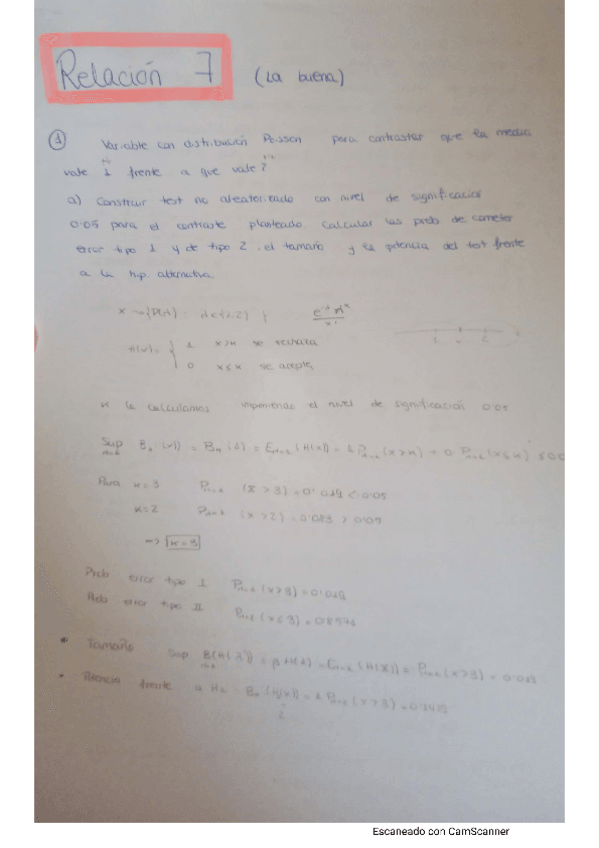 Relación 7 (La buena)
① Variable con distribución Poisson para contrastar que la media
vale 1 frente a que vale 2
a) Construir test no aleatorizado con nivel de significación
0'05 para el contraste planteado. Calcular las prob de cometer
error tipo 1 y de tipo 2, el tamaño y la potencia del test frente
a la hip alternativa.
X ~> {P(λ) : λ ∈ {1,2} }
H(x) = { 1 x>k se rechaza
0 x≤k se acepta
k la calculamos imponiendo el nivel de significación 0'05
Para k=3 (X > 3) = 0'019 < 0'05
k=2 (X > 2) = 0'083 > 0'05
=> k=3
Prob error tipo I (x>3) = 0'019
Prob error tipo II (x≤3) = 0'8576
• Tamaño Sup (x>3) = 0'019
• Potencia frente a (x>3)
Escaneado con CamScanner